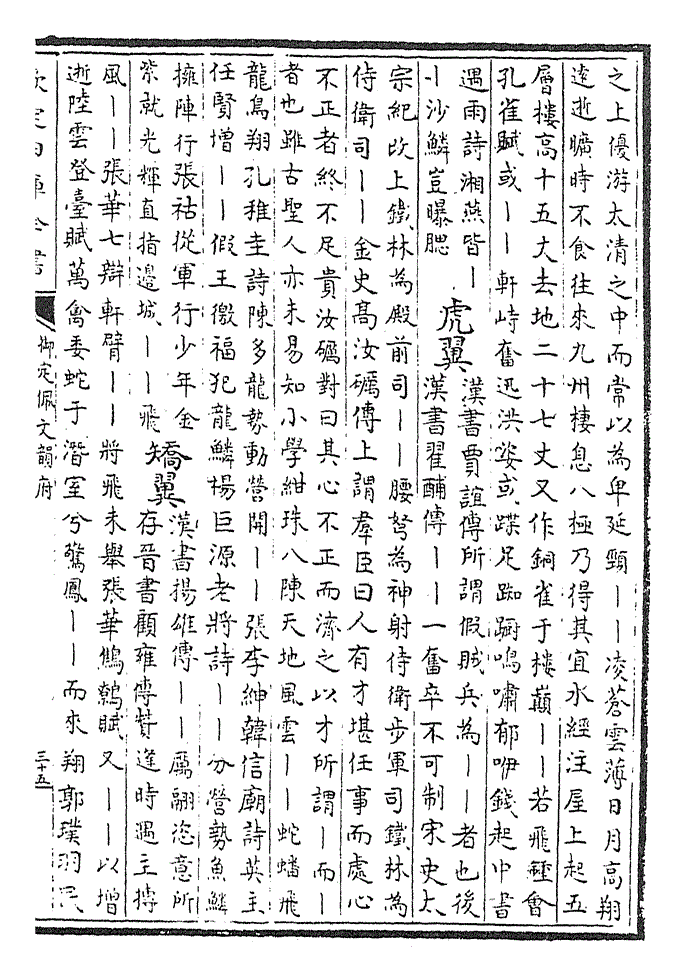 之上優游太清之中而常以為卑延頸丨丨凌蒼雲薄日月高翔
遠逝曠時不食往來九州棲息八極乃得其宜水經注屋上起五
層樓高十五丈去地二十七丈又作銅雀于樓巔丨丨若飛鍾會
孔雀賦或丨丨軒峙奮迅洪姿或蹀足踟躕鳴嘯郁咿錢起中書
遇雨詩湘燕皆丨
丨沙鱗豈曝腮
虎翼
漢書賈誼傳所謂假賊兵為丨丨者也後
漢書翟酺傳丨丨一奮卒不可制宋史太
宗紀改上鐵林為殿前司丨丨腰弩為神射侍衛步軍司鐵林為
侍衛司丨丨金史髙汝礪傳上謂羣臣曰人有才堪任事而處心
不正者終不足貴汝礪對曰其心不正而濟之以才所謂丨而丨
者也雖古聖人亦未易知小學紺珠八陳天地風雲丨丨蛇蟠飛
龍鳥翔孔稚圭詩陳多龍勢動營開丨丨張李紳韓信廟詩英主
任賢增丨丨假王徼福犯龍鱗楊巨源老將詩丨丨分營勢魚鱗
擁陣行張祜從軍行少年金
紫就光輝直指邊城丨丨飛
矯翼
漢書揚雄傳丨丨厲翮恣意所
存晉書顧雍傳賛逢時遇主摶
風丨丨張華七辯軒臂丨丨將飛未舉張華鷦鷯賦又丨丨以增
逝陸雲登臺賦萬禽委蛇于潛室兮驚鳳丨丨而來翔郭璞羽民
欽定四庫全書
御定佩文韻府
三十五